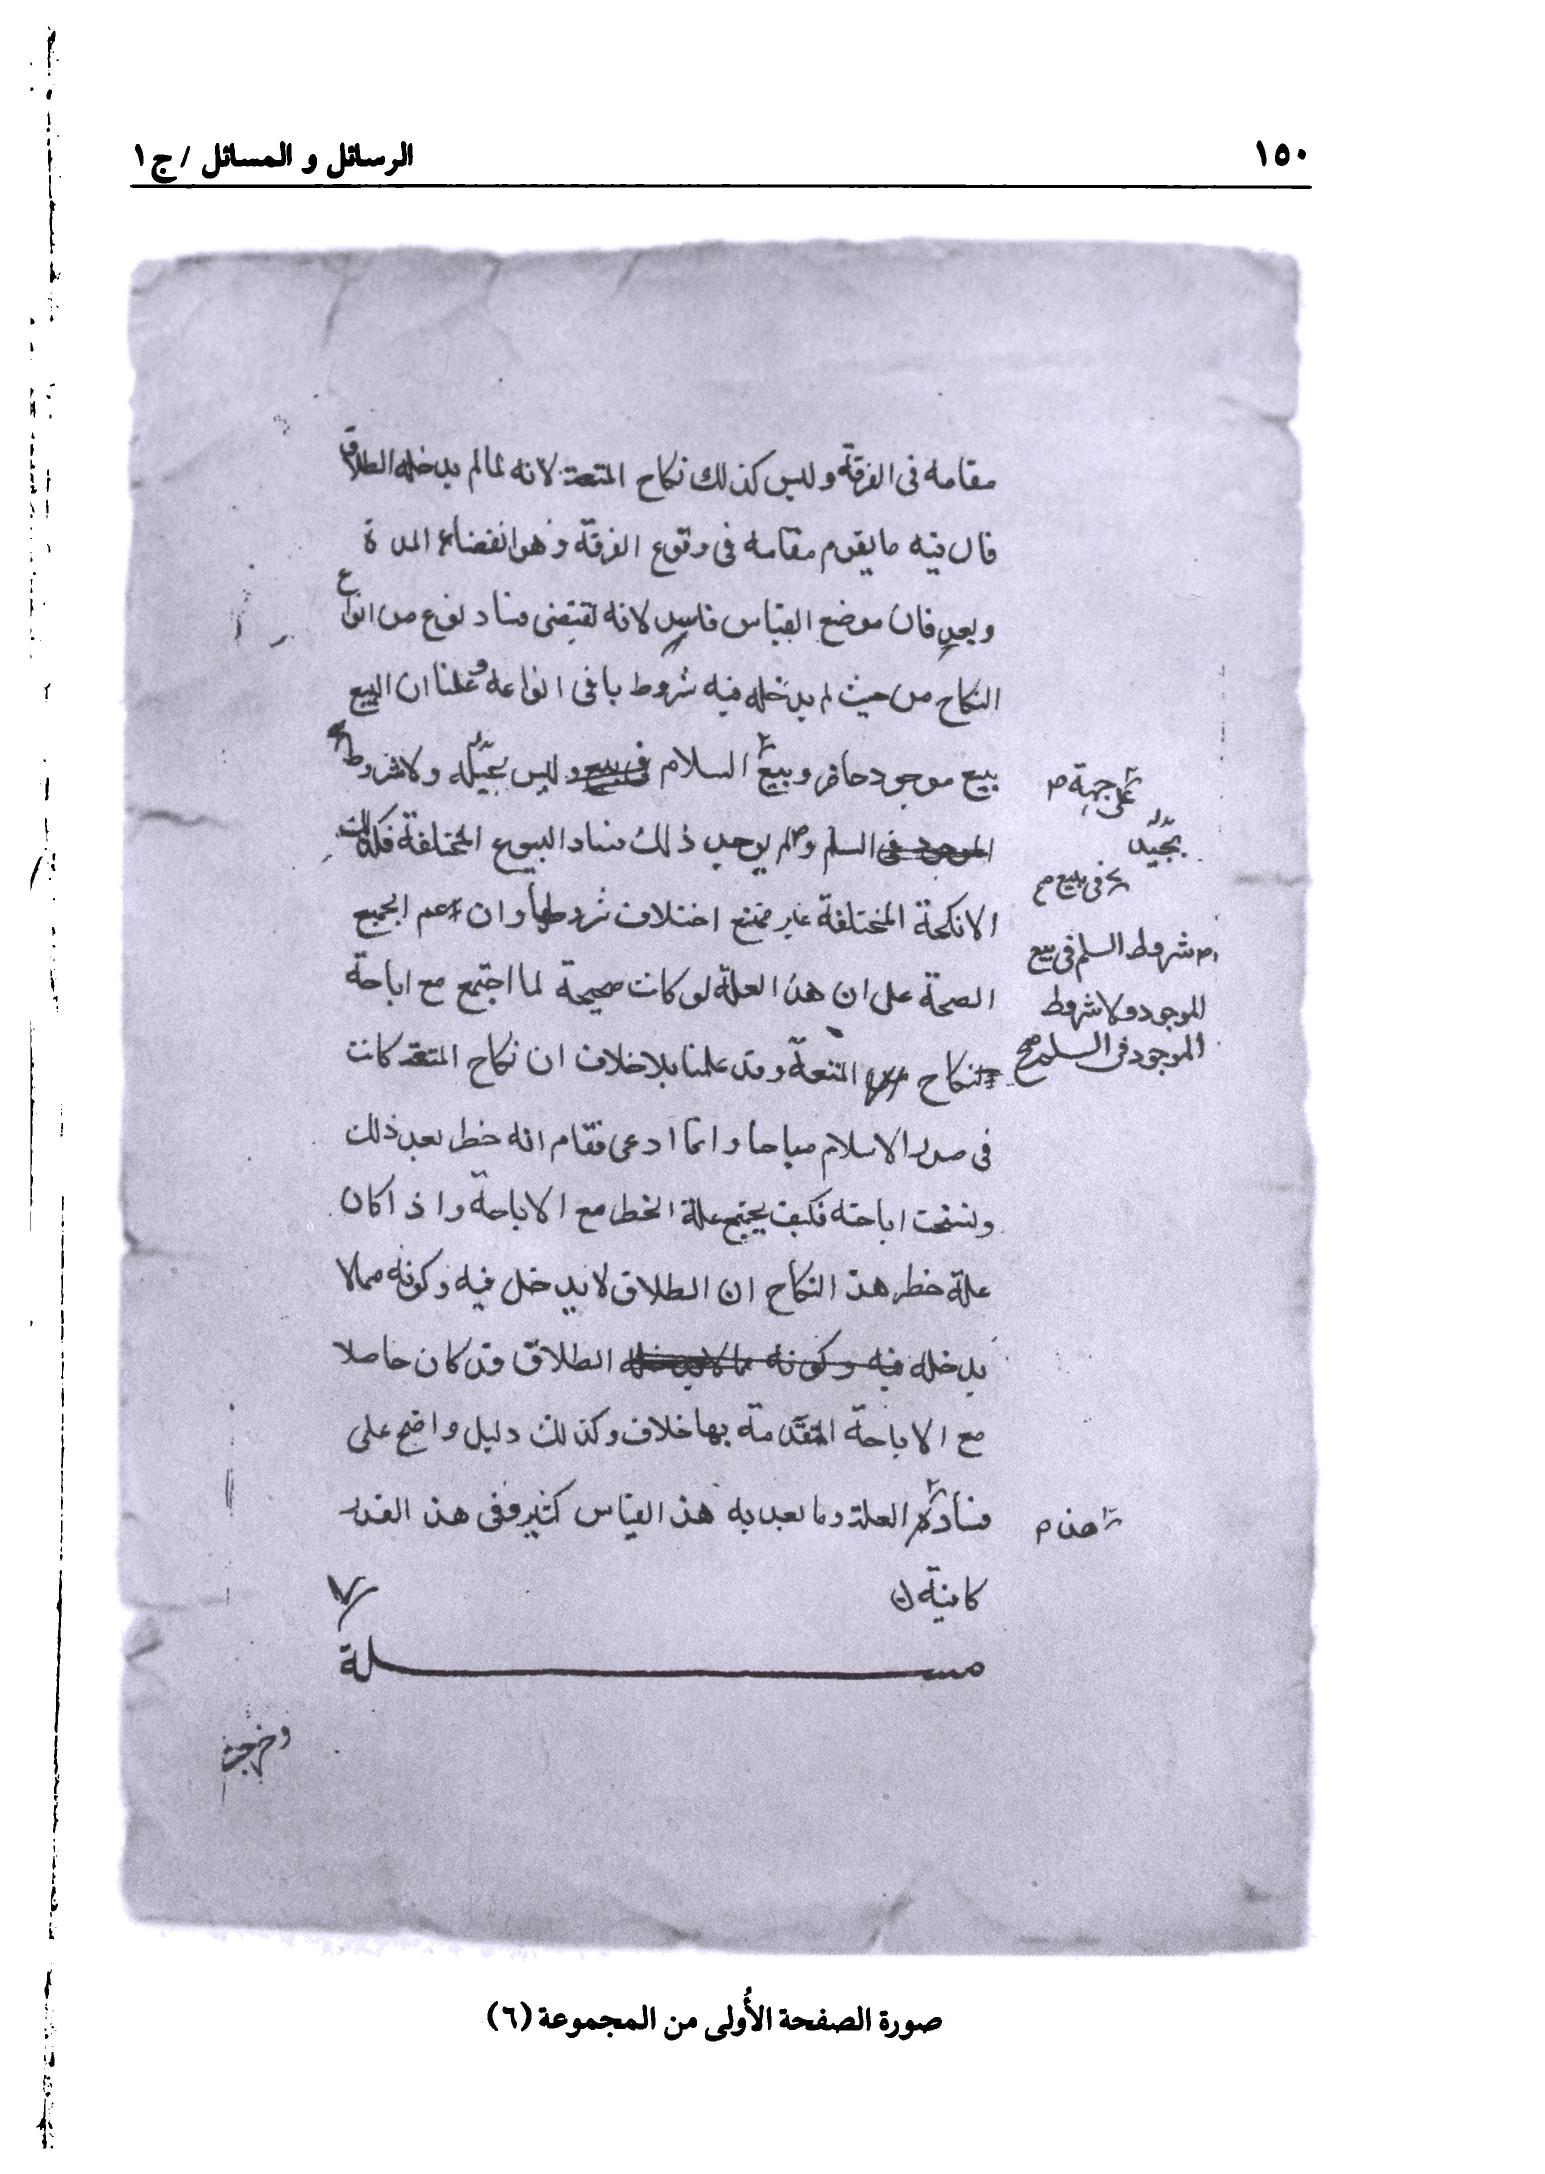 ١٥٠
الرسائل و المسائل / ج١
مقامه فى الفرقة وليس كذلك نكاح المتعة لانه لما لم يدخله الطلاق
قال فيه ما يقوم مقامه فى وقوع الفرقة وهو انقضاء المدة
وبعد فان موضع القياس فاسد لانه تقتضى فساد نوع من انواع
النكاح من حيث لم يدخله فيه شروط باقى انواعه وعلمنا ان البيع
بيع موجود حاضر وبيع السلام فى بيع وليس ولا شروط
على جهة م
الموجود فى السلم ولم يوجب ذلك فساد البيوع المختلفة فكذلك
فى بيع م
الانكحة المختلفة غير ممتنع اختلاف شروطها وان عم الجميع
شروط السلم فى بيع
الصحة على ان هذه العلة لو كانت صحيحة لما اجتمع مع اباحة
الموجود ولا شروط
الموجود فى السلم صح
نكاح المتعة وقد علمنا بلا خلاف ان نكاح المتعة كانت
فى صدر الاسلام مباحا وانما ادعى فقام انه حظر بعد ذلك
ونسخت اباحته فكيف يجتمع علة الحظر مع الاباحة واذا كان
علة حظر هذا النكاح ان الطلاق لا يدخل فيه وكونه مما لا
يدخله فيه وكونه مما لا يدخله الطلاق قد كان حاصلا
مع الاباحة المتقدمة بها خلاف وكذلك دليل واضح على
فساد العلة وما بعد به هذا القياس كثير وفى هذا القدر
هذه م
كافية
مسلة
وخرجت
صورة الصفحة الأُولى من المجموعة (٦)